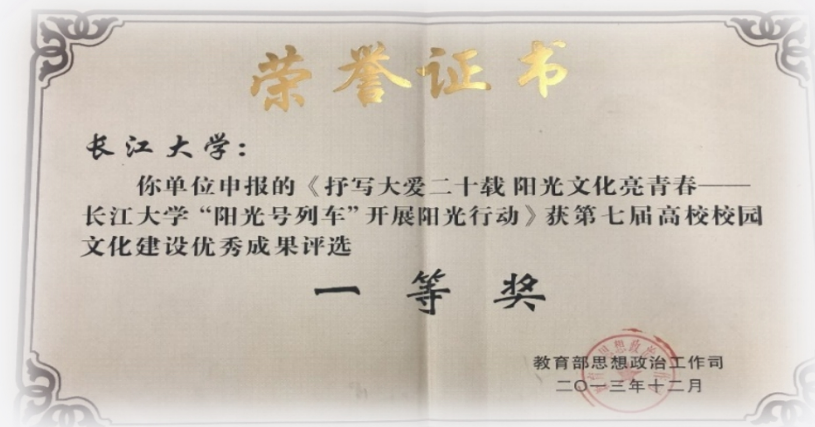 荣誉证书
长江大学：
你单位申报的《抒写大爱二十载 阳光文化亮青春——
长江大学“阳光号列车”开展阳光行动》获第七届高校校园
文化建设优秀成果评选
一等奖
教育部思想政治工作司
二〇一三年十二月